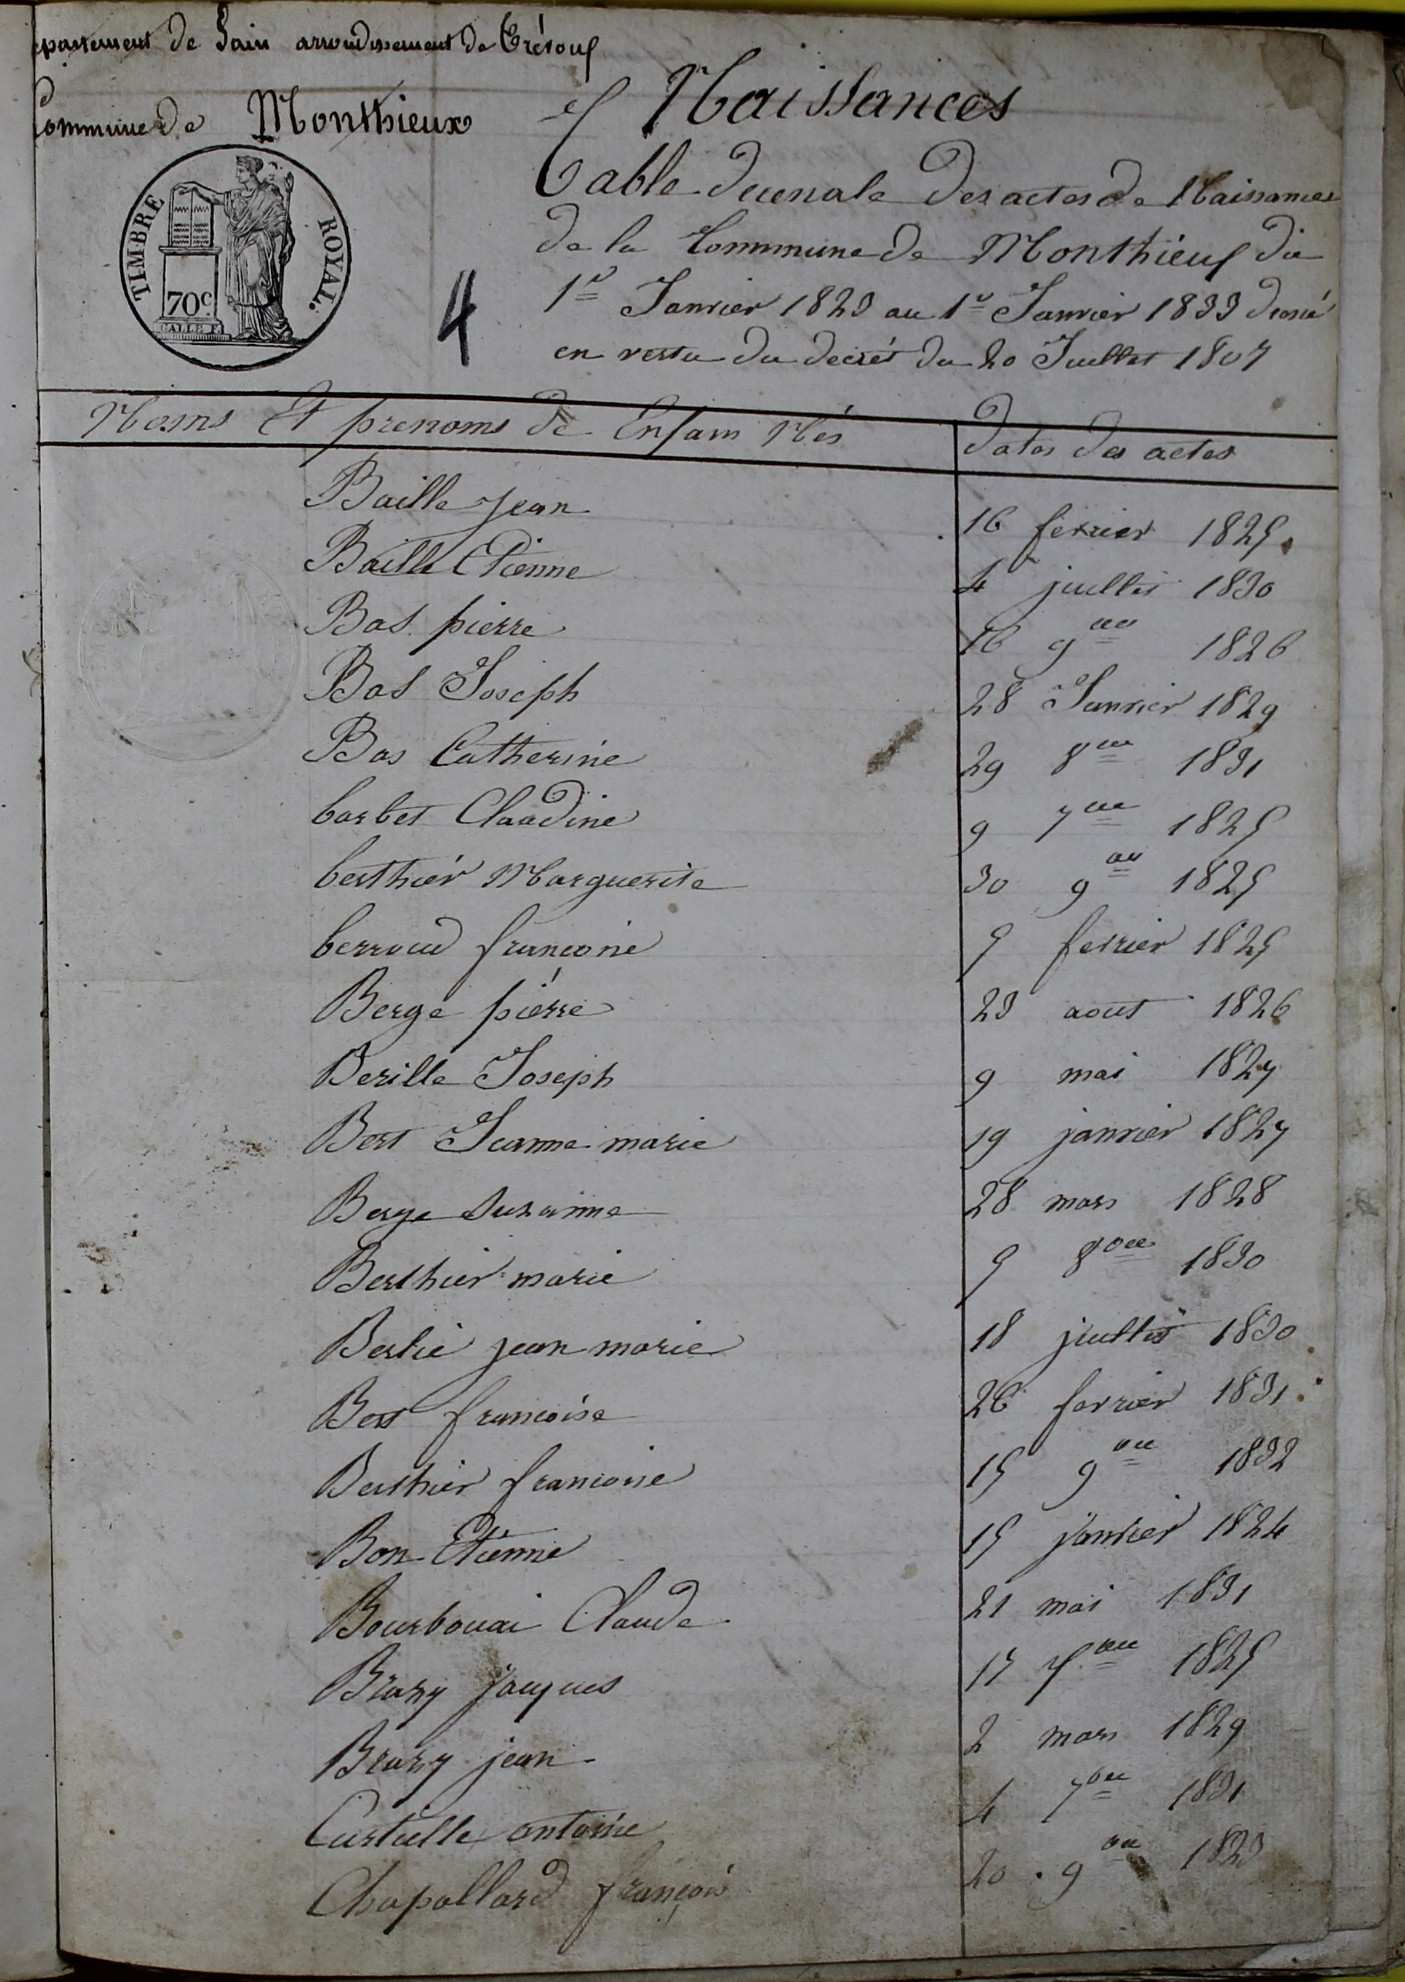 epartement de Lain arrondissement de Trévoux
Commune de Monthieux
Naissances
Table decenale des actes de Naissances
de la Commune de Monthieux du
1er Janvier 1823 au 1er Janvier 1833
en vertu du decrét du 20 Juillet 1807
TIMBRE ROYAL.
70c.
4
Noms Et prenoms de Enfans Nés dates des actes
Baille jean 16 fevrier 1825
Baille Etienne 4 juillet 1830
Bas pierre 16 9bre 1826
Bas Joseph 28 Janvier 1829
Bas Catherine 29 8bre 1831
barbet Claudine 9 7bre 1825
berthier Marguerite 30 9bre 1825
berroud francoise 5 fevrier 1825
Berge piérre 23 aout 1826
Berille Joseph 9 mai 1827
Bert Jeanne marie 19 janvier 1827
Berge Suzanne 28 mars 1828
Berthier marie 5 8bre 1830
Berlié jean marie 18 juillet 1830
Bert francoise 26 fevrier 1831
Berthier francoise 15 9bre 1832
Bon Etienne 15 janvier 1824
Bourbouai Claude 21 mai 1831
Brazy jacques 17 7bre 1825
Brazy jean 2 mars 1829
Curtielle antoine 4 7bre 1831
Chapollard françois 20 9bre 1823